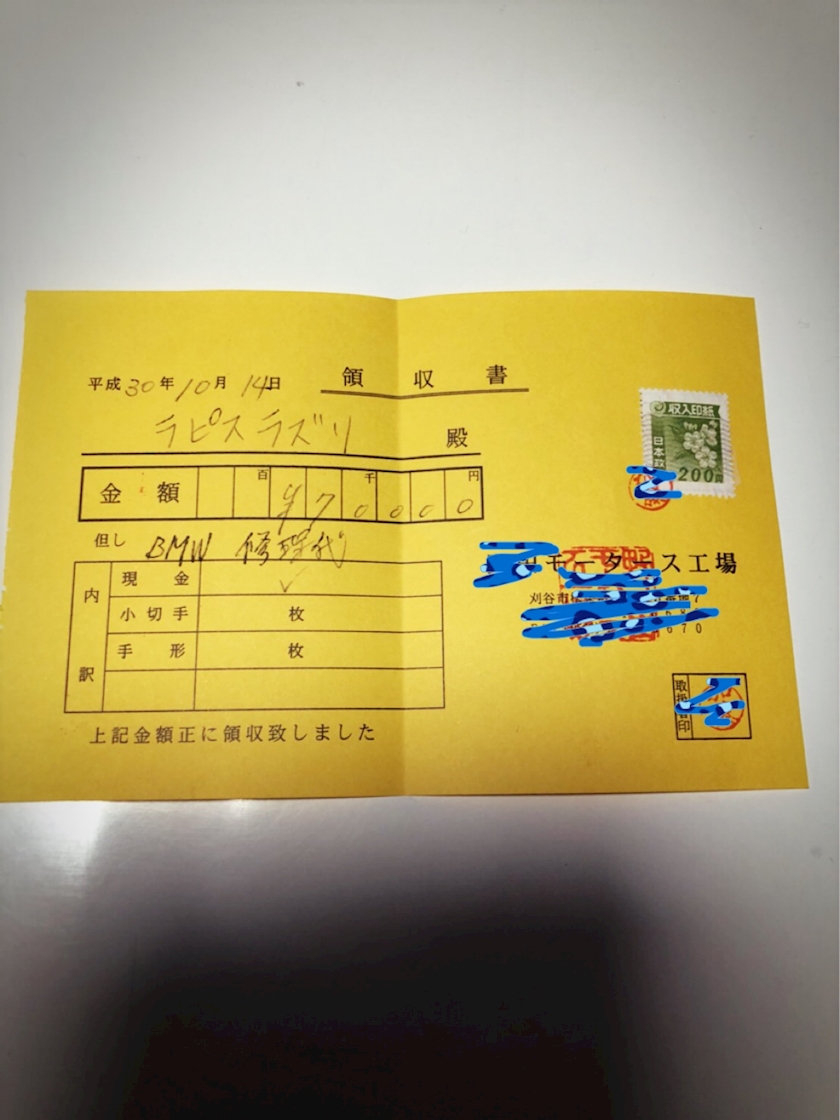 領収書
平成30年10月14日
ラピスラズリ 殿
金額 百 千 円
¥70000
但し BMW 修理代
内訳
現金 ✓
小切手 枚
手形 枚
上記金額正に領収致しました
収入印紙
日本政
200円
モータース工場
刈谷市
670
取扱者印